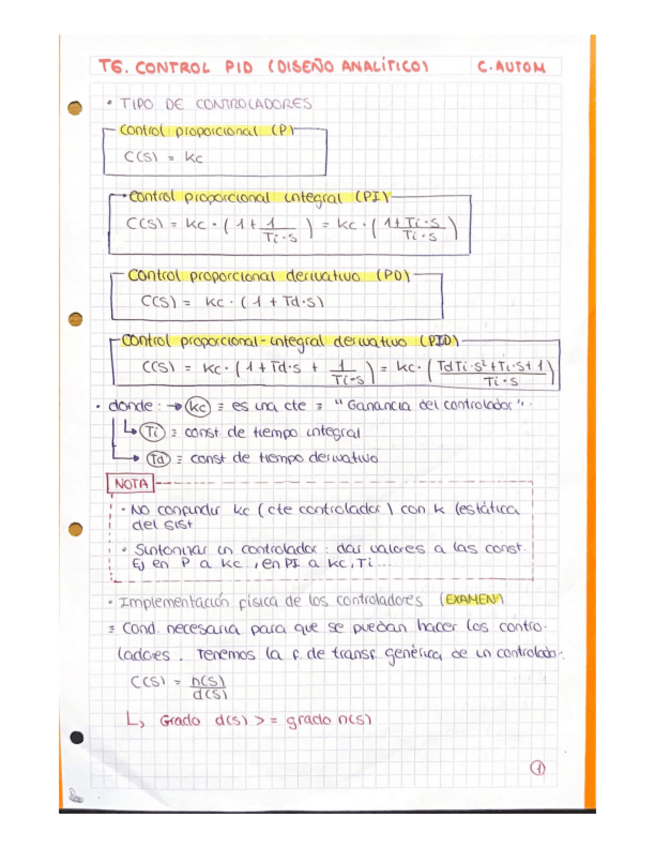 T6. CONTROL PID (DISEÑO ANALÍTICO) C. AUTOM
• TIPO DE CONTROLADORES
Control proporcional (P)
C(S) = Kc
Control proporcional integral (PI)
C(S) = Kc · (1 + 1/(Ti·S)) = Kc · ((1+Ti·S)/(Ti·S))
Control proporcional derivativo (PD)
C(S) = Kc · (1 + Td·S)
Control proporcional-integral derivativo (PID)
C(S) = Kc · (1 + Td·S + 1/(Ti·S)) = Kc · ((TdTi·S²+Ti·S+1)/(Ti·S))
• donde: → Kc ≡ es una cte ≡ "Ganancia del controlador".
↳ Ti ≡ const. de tiempo integral
→ Td ≡ const de tiempo derivativo
NOTA
• No confundir Kc (cte controlador) con K (estática
del sist
• Sintonizar un controlador: dar valores a las const.
Ej en P a Kc, en PI a Kc, Ti...
• Implementación física de los controladores (EXAMEN)
≡ Cond. necesaria para que se puedan hacer los contro-
ladores. Tenemos la f. de transf. genérica de un controlador:
C(S) = n(S)/d(S)
↳ Grado d(S) >= grado n(S)
1